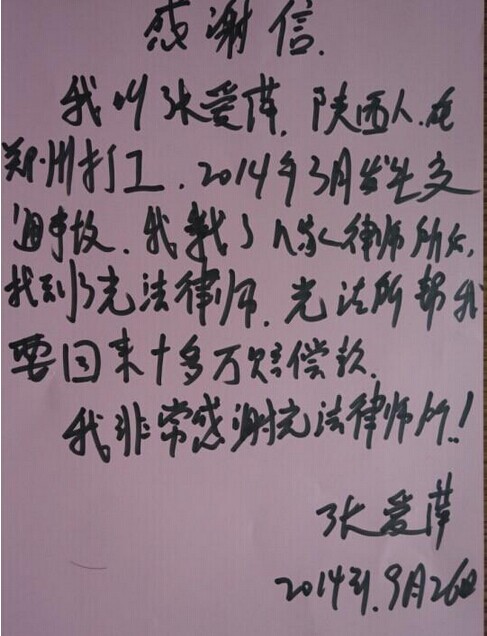 感谢信.
我叫张爱萍.陕西人.在
郑州打工.2014年3月发生交
通事故.我找了几家律师所后,
找到了亮法律师.亮法所帮我
要回来十多万赔偿款.
我非常感谢亮法律师所!
张爱萍
2014年.9月26日